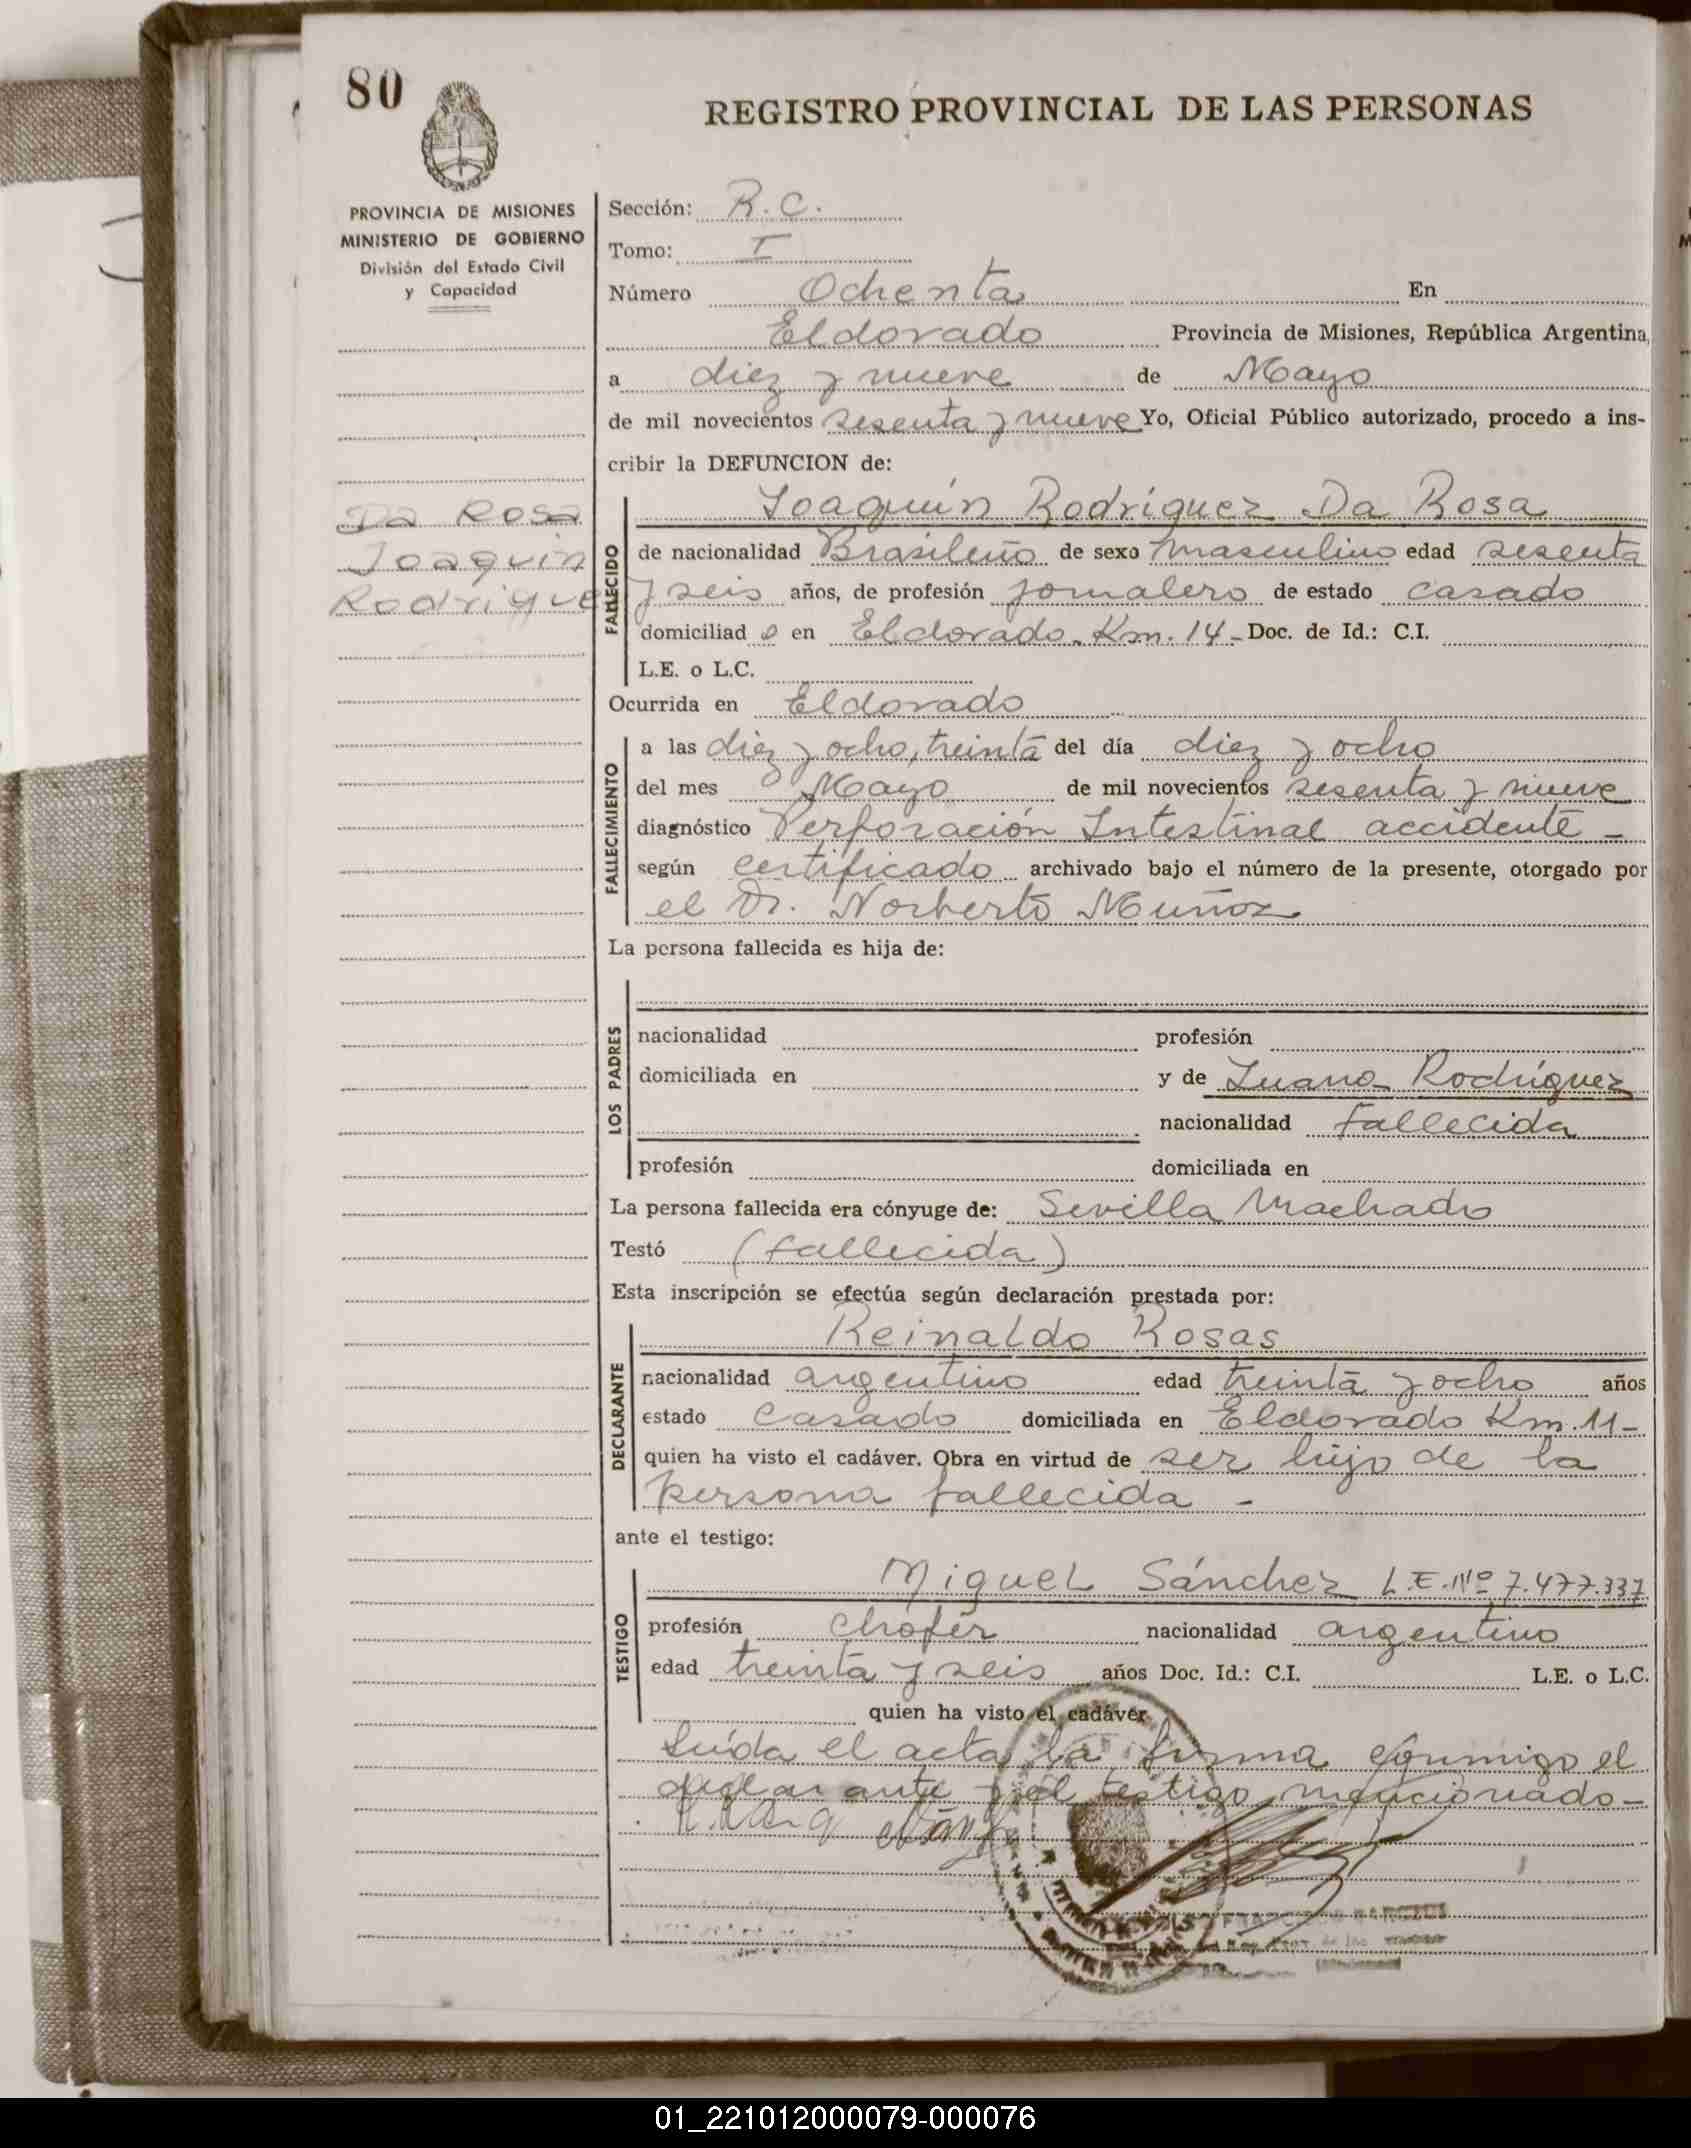 80
REGISTRO PROVINCIAL DE LAS PERSONAS
PROVINCIA DE MISIONES
MINISTERIO DE GOBIERNO
División del Estado Civil
y Capacidad
Da Rosa
Joaquin
Rodrigue
Sección: R.C.
Tomo: I
Número Ochenta En
Eldorado Provincia de Misiones, República Argentina,
a diez y nueve de Mayo
de mil novecientos sesenta y nueve Yo, Oficial Público autorizado, procedo a ins-
cribir la DEFUNCION de:
FALLECIDO
Joaquín Rodríguez Da Rosa
de nacionalidad Brasileño de sexo masculino edad sesenta
y seis años, de profesión jornalero de estado casado
domiciliad o en Eldorado Km. 14 - Doc. de Id.: C.I.
L.E. o L.C.
Ocurrida en Eldorado
FALLECIMIENTO
a las diez y ocho, treinta del día diez y ocho
del mes Mayo de mil novecientos sesenta y nueve
diagnóstico Perforación Intestinal accidente -
según certificado archivado bajo el número de la presente, otorgado por
el Dr. Norberto Muñoz
La persona fallecida es hija de:
LOS PADRES
nacionalidad profesión
domiciliada en y de Juana Rodríguez
nacionalidad fallecida
profesión domiciliada en
La persona fallecida era cónyuge de: Sevilla Machado
Testó (fallecida)
Esta inscripción se efectúa según declaración prestada por:
DECLARANTE
Reinaldo Rosas
nacionalidad argentino edad treinta y ocho años
estado casado domiciliada en Eldorado Km. 11 -
quien ha visto el cadáver. Obra en virtud de ser hijo de la
persona fallecida -
ante el testigo:
TESTIGO
Miguel Sánchez L.E. Nº 7.477.337
profesión chofer nacionalidad argentino
edad treinta y seis años Doc. Id.: C.I. L.E. o L.C.
quien ha visto el cadáver
Leída el acta la firma conmigo el
declarante y el testigo mencionado -
01_221012000079-000076